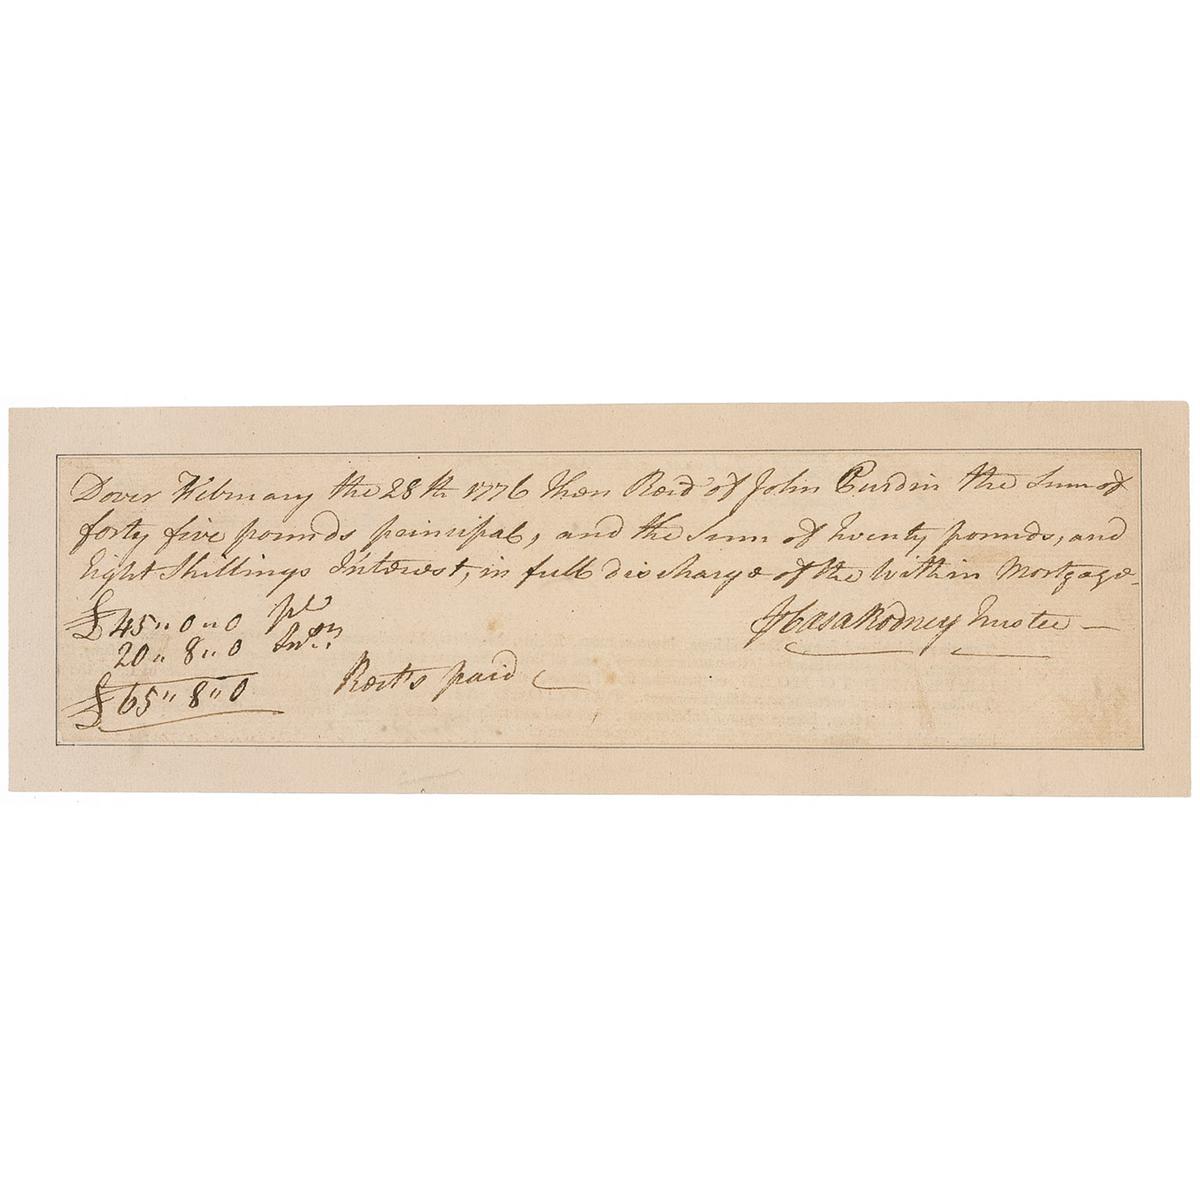 Dover February the 28th 1776 then Recd of John Curdin the Sum of
forty five pounds principal, and the Sum of twenty pounds, and
Eight Shillings Interest, in full discharge of the within Mortgage
£45 " 0 " 0 pl
Caesar Rodney Trustee
20 " 8 " 0 Intt
£65 " 8 " 0 Rect's paid